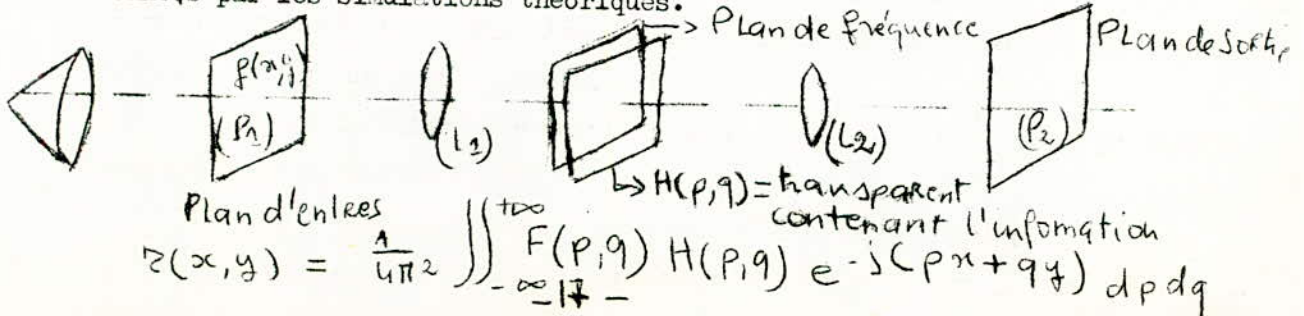 par les simulations théoriques.
Plan de fréquence
PLan de Sortie
f(x,y)
(P1)
(L1)
(L2)
(P2)
H(p,q) = transparent
contenant l'infomation
Plan d'entrées
r(x,y) = 1/4π2 ∬ +∞ -∞ F(p,q) H(p,q) e -j(px+qy) dpdq
- 17 -